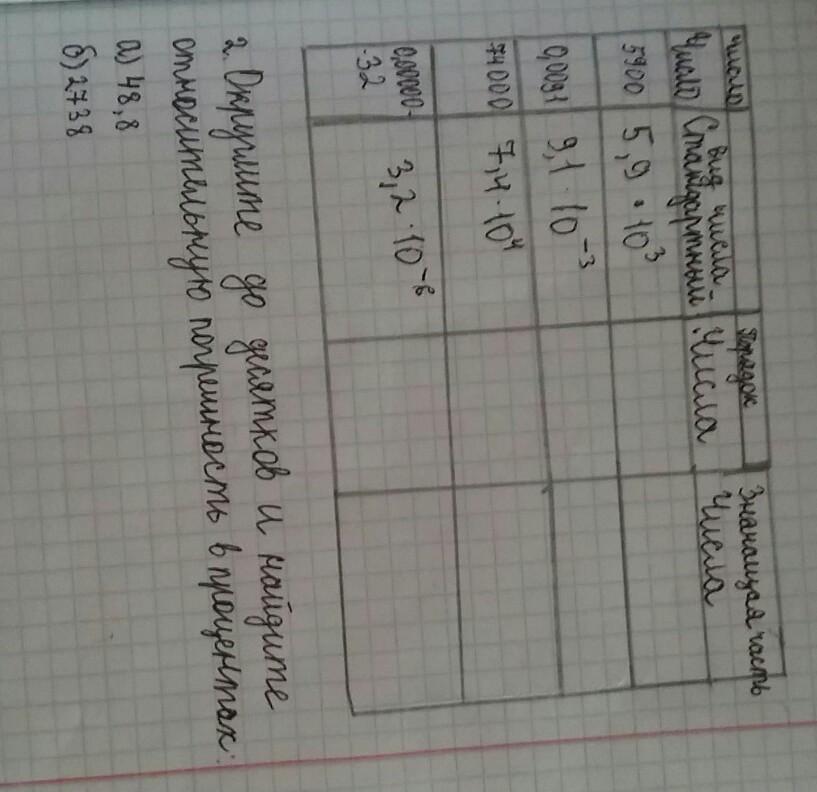 число вид числа порядок Значащая часть
Число Стандартный числа числа
5900 5,9 • 10³
0,0091 9,1 · 10⁻³
74000 7,4 · 10⁴
0,00000- 3,2 · 10⁻⁶
-32
2. Округлите до десятков и найдите
относительную погрешность в процентах:
а) 48,8
б) 2738